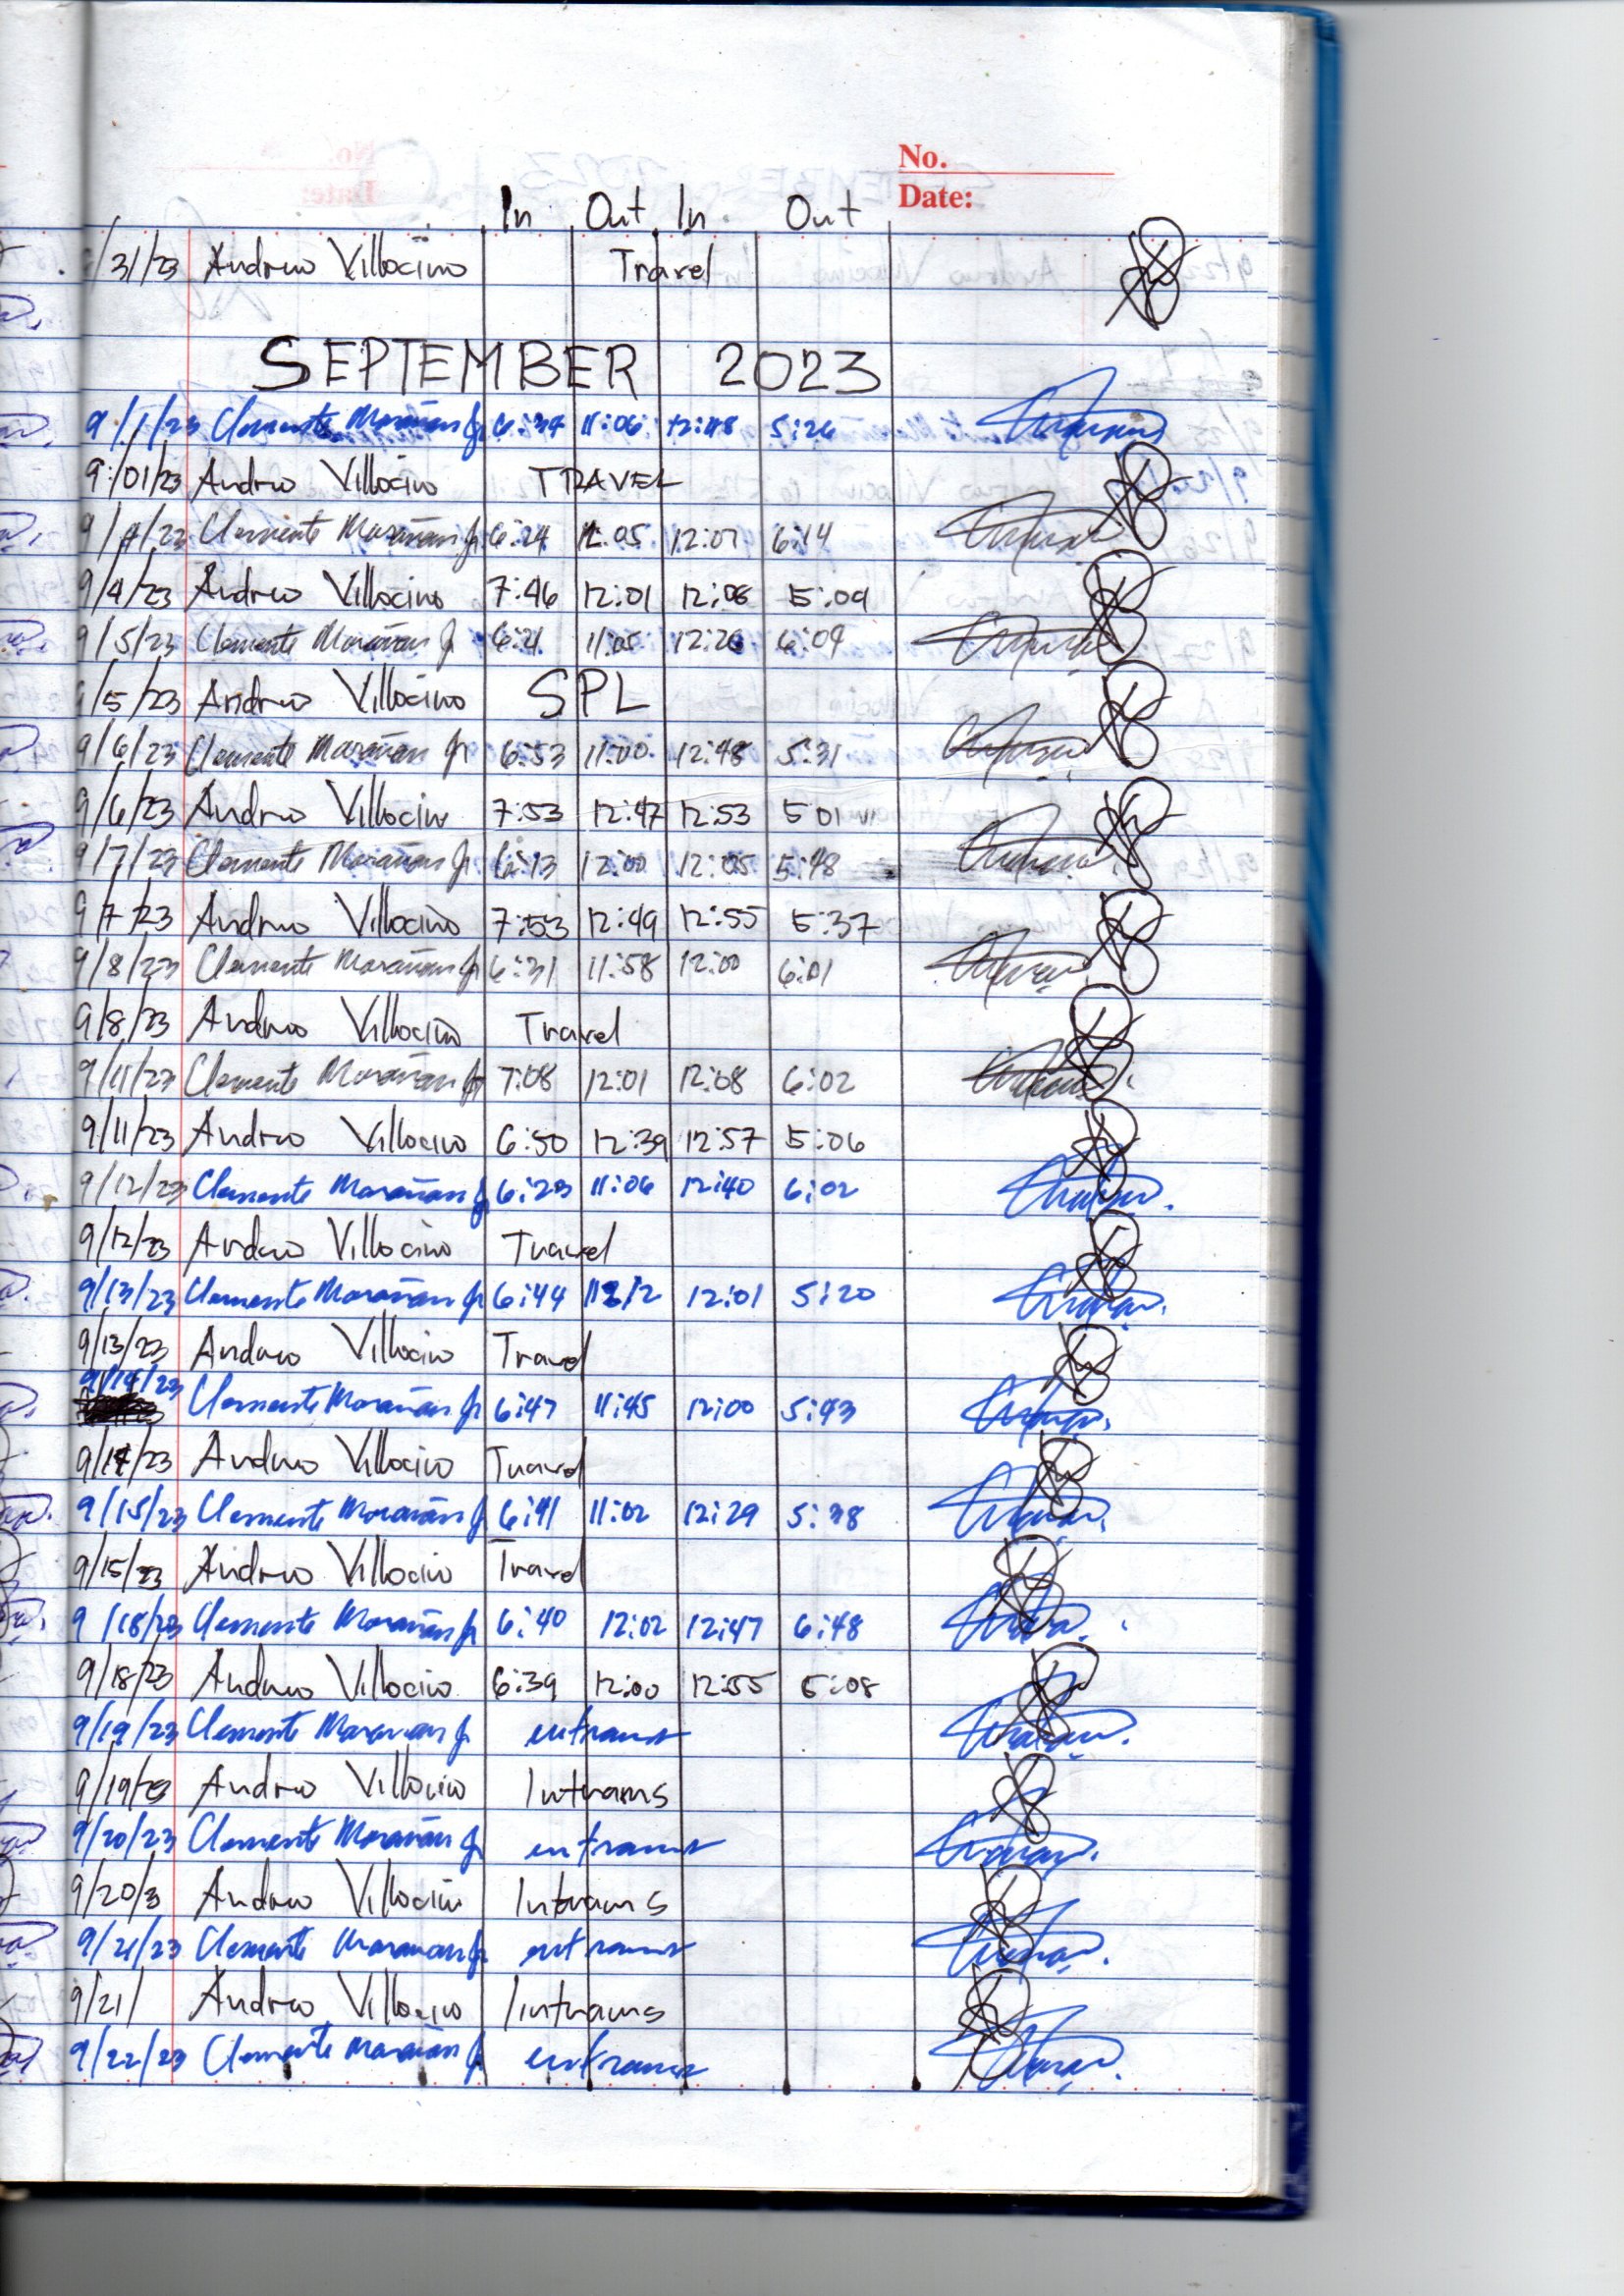 No.
Date:
In Out In Out
/31/23 Andrew Villocino Travel
SEPTEMBER 2023
9/1/23 Clemente Marañan Jr 6:34 11:06 12:48 5:26
9/01/23 Andrew Villocino TRAVEL
9/4/23 Clemente Marañan Jr 6:24 12:05 12:07 6:14
9/4/23 Andrew Villocino 7:46 12:01 12:08 5:09
9/5/23 Clemente Marañan Jr 6:21 11:05 12:26 6:09
9/5/23 Andrew Villocino SPL
9/6/23 Clemente Marañan Jr 6:53 11:00 12:48 5:31
9/6/23 Andrew Villocino 7:53 12:47 12:53 5:01
9/7/23 Clemente Marañan Jr 6:13 12:00 12:05 5:48
9/7/23 Andrew Villocino 7:53 12:49 12:55 5:37
9/8/23 Clemente Marañan Jr 6:31 11:58 12:00 6:01
9/8/23 Andrew Villocino Travel
9/11/23 Clemente Marañan Jr 7:08 12:01 12:08 6:02
9/11/23 Andrew Villocino 6:50 12:39 12:57 5:06
9/12/23 Clemente Marañan Jr 6:23 11:06 12:40 6:02
9/12/23 Andrew Villocino Travel
9/13/23 Clemente Marañan Jr 6:44 12:01 5:20
9/13/23 Andrew Villocino Travel
9/14/23 Clemente Marañan Jr 6:47 11:45 12:00 5:43
9/14/23 Andrew Villocino Travel
9/15/23 Clemente Marañan Jr 6:41 11:02 12:29 5:38
9/15/23 Andrew Villocino Travel
9/18/23 Clemente Marañan Jr 6:40 12:02 12:47 6:48
9/18/23 Andrew Villocino 6:39 12:00 12:55 5:08
9/19/23 Clemente Marañan Jr entrams
9/19/23 Andrew Villocino Intrams
9/20/23 Clemente Marañan Jr entrams
9/20/3 Andrew Villocino Intrams
9/21/23 Clemente Marañan Jr entrams
9/21/ Andrew Villocino Intrams
9/22/23 Clemente Marañan Jr entrams